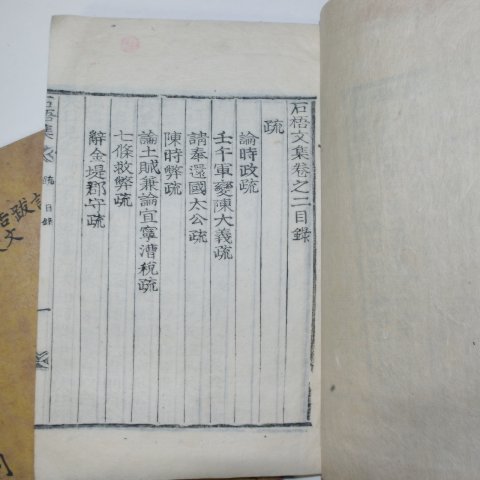 石梧文集卷之二目錄
疏
論時政疏
壬午軍變陳大義疏
請奉還國太公疏
陳時弊疏
論土賊兼論宜寧漕稅疏
七條救弊疏
辭金堤郡守疏
石梧集
疏
目錄
一
跋
文